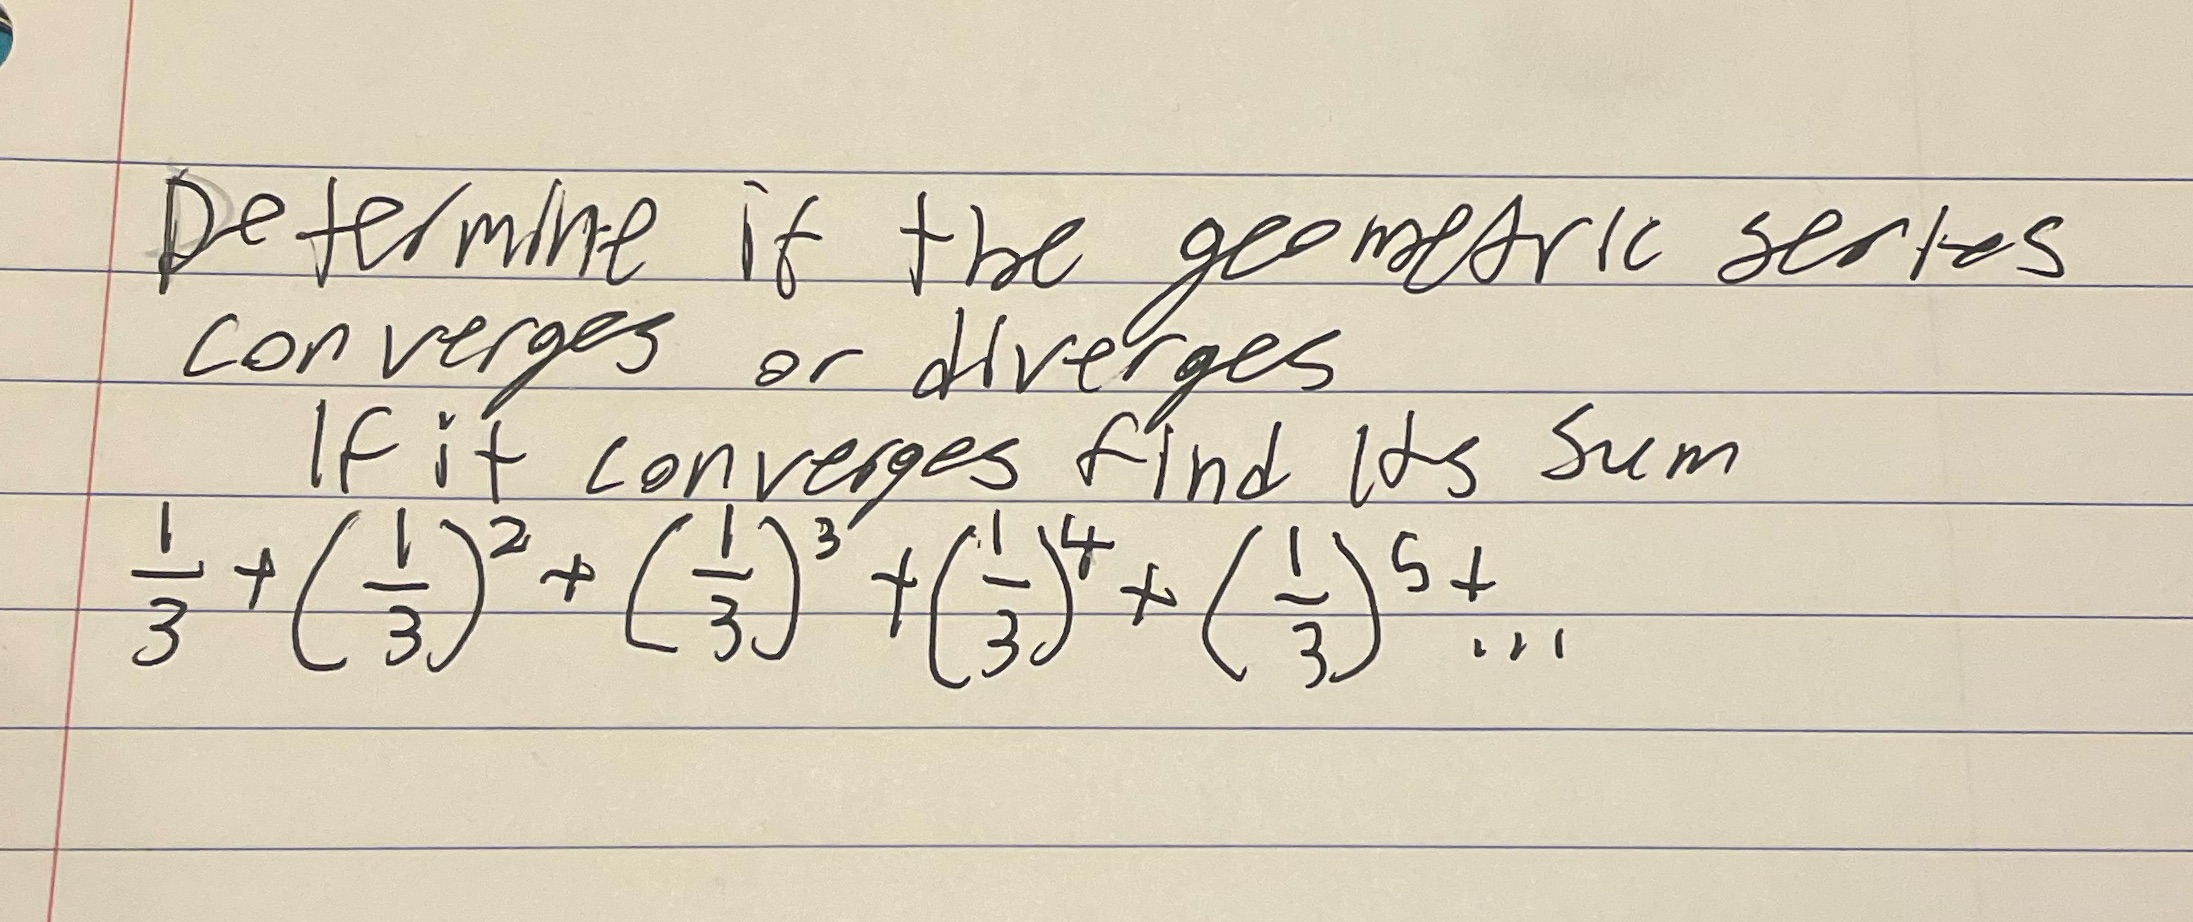 Determine if the geometric series
converges or diverges
If it converges find its sum
1/3 + (1/3)^2 + (1/3)^3 + (1/3)^4 + (1/3)^5 + ...